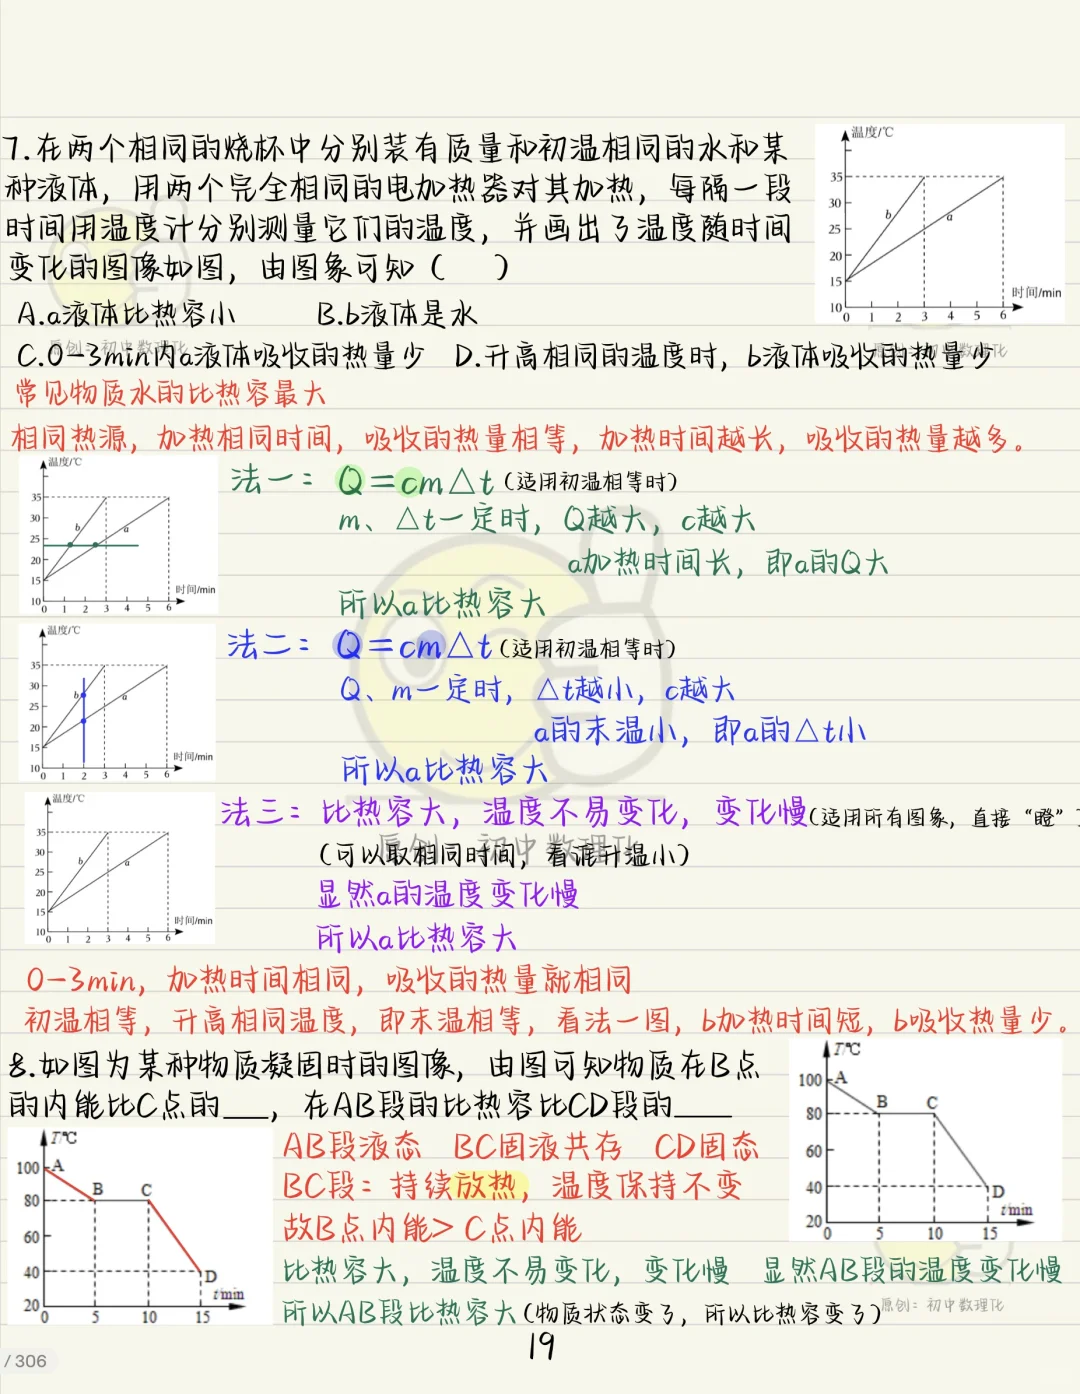 7.在两个相同的烧杯中分别装有质量和初温相同的水和某
种液体，用两个完全相同的电加热器对其加热，每隔一段
时间用温度计分别测量它们的温度，并画出了温度随时间
变化的图像如图，由图象可知（　　）
温度/℃
35
30
25
20
15
10
b
a
时间/min
0 1 2 3 4 5 6
A.a液体比热容小 B.b液体是水
C.0-3min内a液体吸收的热量少 D.升高相同的温度时，b液体吸收的热量少
原创：初中数理化
常见物质水的比热容最大
相同热源，加热相同时间，吸收的热量相等，加热时间越长，吸收的热量越多。
温度/℃
35
30
25
20
15
10
b
a
时间/min
0 1 2 3 4 5 6
法一：Q=cm△t(适用初温相等时)
m、△t一定时，Q越大，c越大
a加热时间长，即a的Q大
所以a比热容大
温度/℃
35
30
25
20
15
10
b
a
时间/min
0 1 2 3 4 5 6
法二：Q=cm△t(适用初温相等时)
Q、m一定时，△t越小，c越大
a的末温小，即a的△t小
所以a比热容大
温度/℃
35
30
25
20
15
10
b
a
时间/min
0 1 2 3 4 5 6
法三：比热容大，温度不易变化，变化慢(适用所有图象，直接“瞪”
原创：初中数理化
(可以取相同时间，看谁升温小)
显然a的温度变化慢
所以a比热容大
0-3min，加热时间相同，吸收的热量就相同
初温相等，升高相同温度，即末温相等，看法一图，b加热时间短，b吸收热量少。
8.如图为某种物质凝固时的图像，由图可知物质在B点
的内能比C点的___，在AB段的比热容比CD段的____
T/℃
100
80
60
40
20
A
B
C
D
t/min
0 5 10 15
T/℃
100
80
60
40
20
A
B
C
D
t/min
0 5 10 15
AB段液态 BC固液共存 CD固态
BC段：持续放热，温度保持不变
故B点内能>C点内能
比热容大，温度不易变化，变化慢 显然AB段的温度变化慢
所以AB段比热容大(物质状态变了，所以比热容变了)
原创：初中数理化
19
/ 306